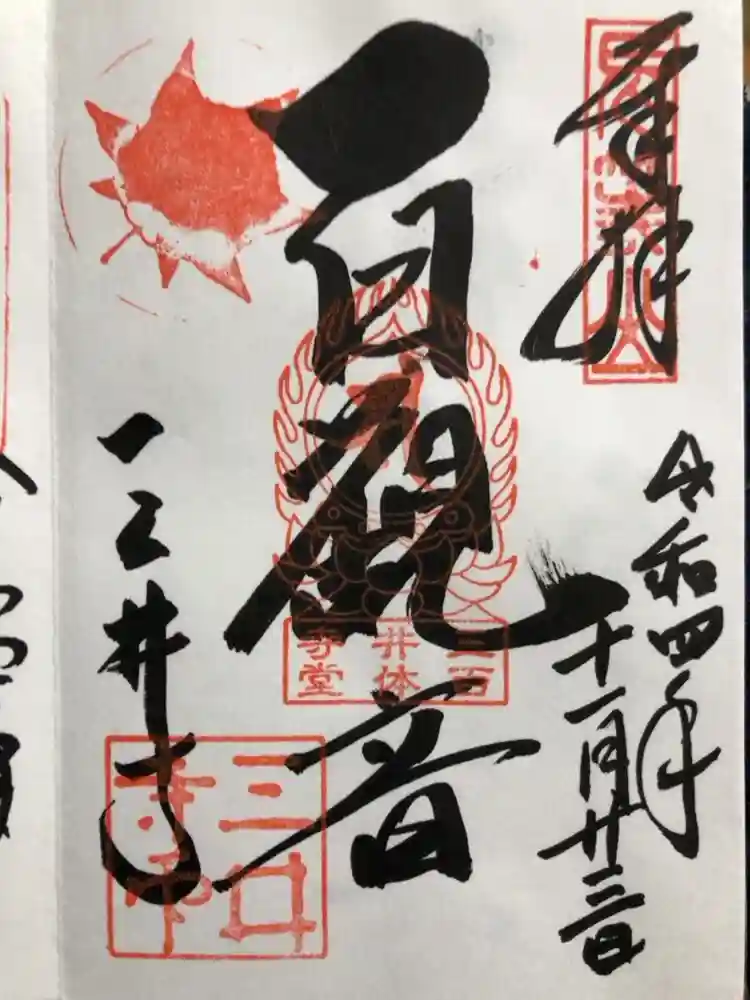 奉拝
令和四年
十一月廿三日
百観音
三井寺
百体堂
三井寺
三井寺印